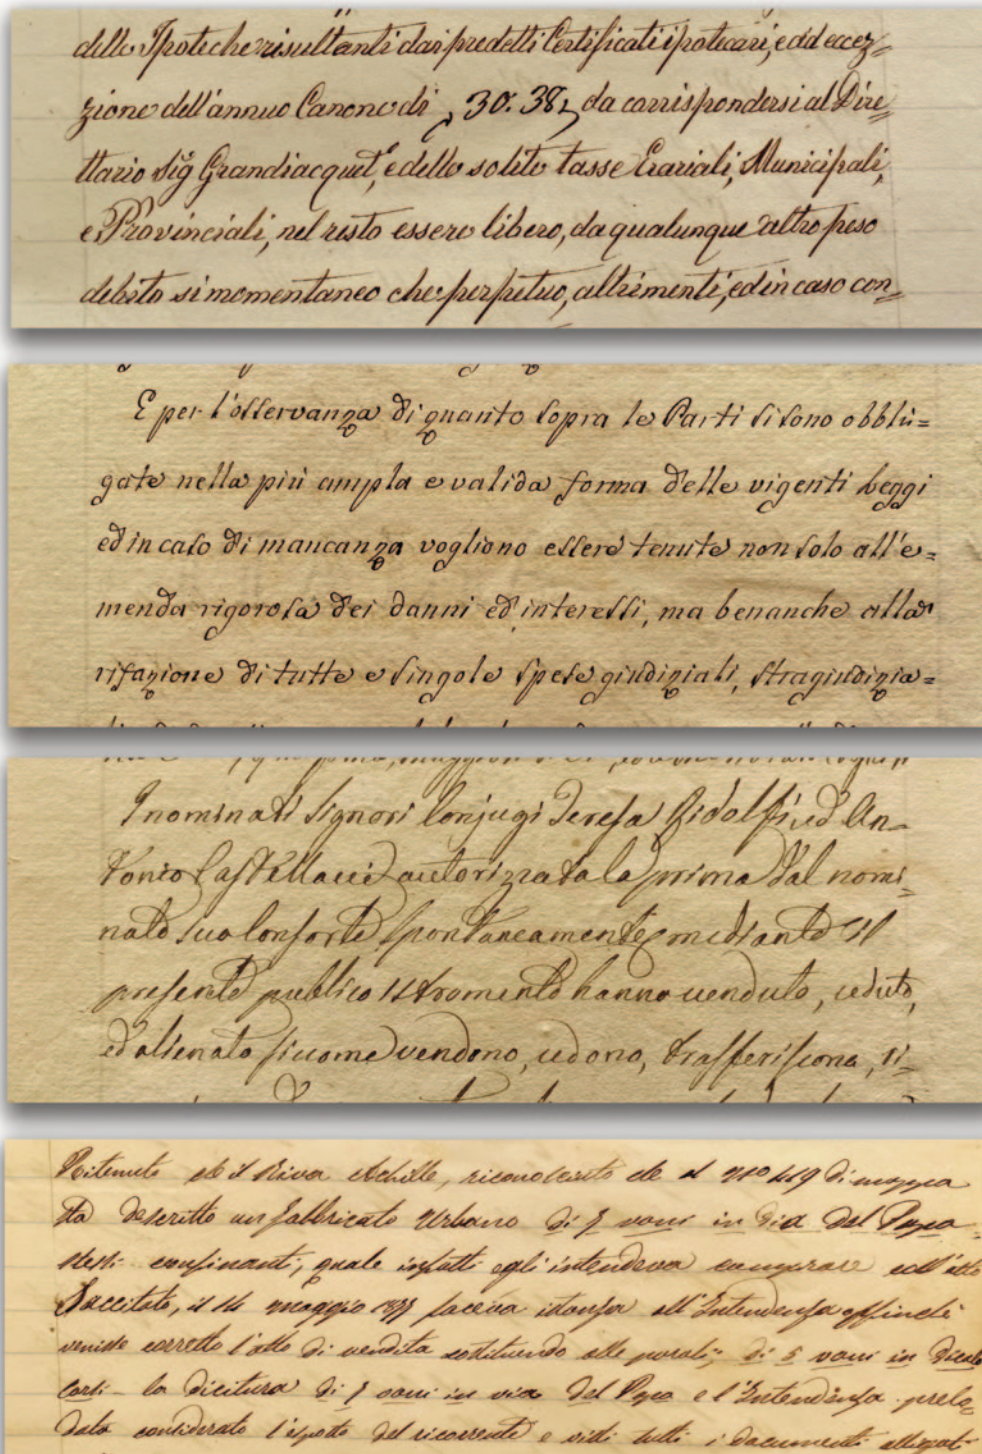 delle Ipoteche risultanti dai predetti Certificati ipotecari, ed eccez=
zione dell'annuo Canone di 30.38, da corrispondersi al Dire=
ttario Sig Grandjacquet, e delle solite tasse Erariali, Municipali,
e Provinciali, nel resto essere libero, da qualunque altro peso
debito si momentaneo che perpetuo, altrimenti, ed in caso con=
E per l'osservanza di quanto sopra le Parti si sono obbli=
gate nella più ampla e valida forma delle vigenti Leggi
ed in caso di mancanza vogliono essere tenute non solo all'e=
menda rigorosa dei danni ed interessi, ma benanche alla
rifazione di tutte e singole spese giudiziali, stragiudizia=
I nominati Signori Conjugi Teresa Ridolfi, ed An=
tonio Castellacci autorizzata la prima dal nomi=
nato suo Consorte spontaneamente mediante il
presente pubblico istromento hanno venduto, ceduto,
ed alienato siccome vendono, cedono, trasferiscono, ri=
Ritenuto che il Riva Achille, riconosciuto che al di mappa
sta descritto un fabbricato Urbano di 5 vani in via Del Papa
stessi confinanti, quale infatti egli intendeva comprare coll'atto
Succitato, il 14 maggio faceva istanza all'Intendenza affinchè
venisse corretto l'atto di vendita sostituendo alle parole; di 5 vani in
la dicitura di 5 vani in via Del Papa e l'Intendenza prelo=
data considerato l'esposto del ricorrente e visti tutti i documenti allegati